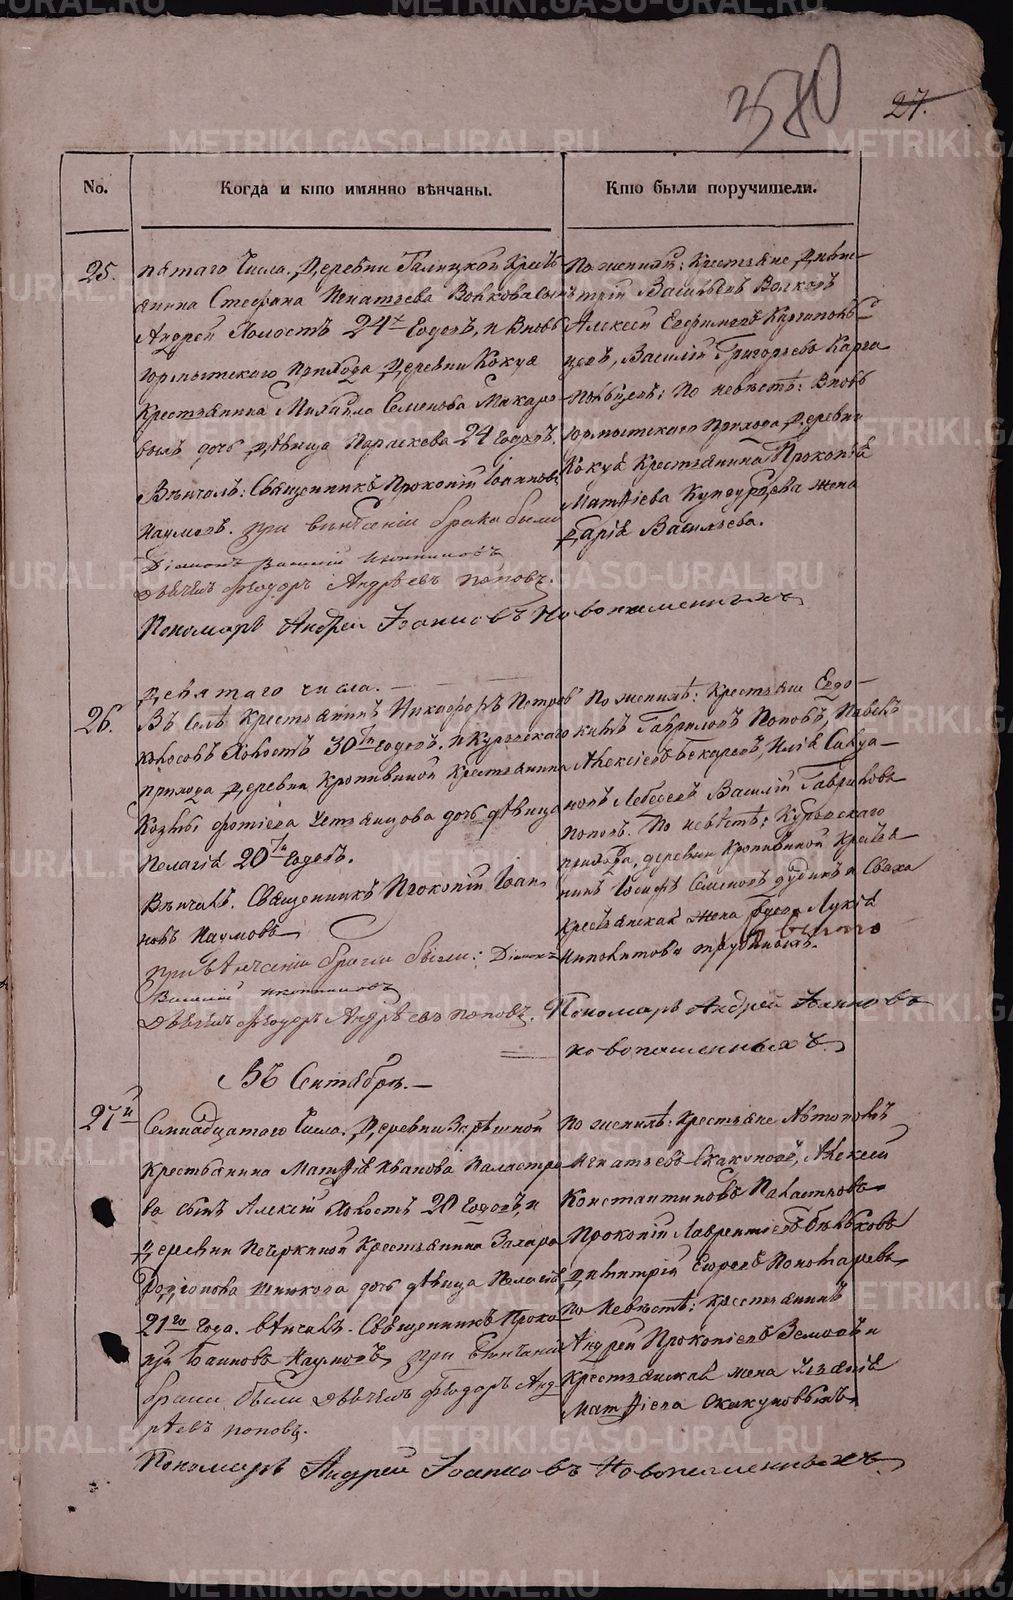 METRIKI.GASO-URAL.RU
380
27.
No.
Когда и кто имянно вѣнчаны.
Кто были поручители.
25.
пятаго Числа. Деревни Галицкой Кресть-
янина Стефана Игнатьева Волкова сынъ
Андрей Холостъ 24х Годовъ, и Вновь
Юрмытскаго Прихода Деревни Кокуя
Крестьянина Михайла Семенова Макаро-
выхъ дочь дѣвица Параскева 24 Годовъ.
Вѣнчалъ: Священникъ Прокопій Іоанновъ
Наумовъ. при вѣнчаніи брака были
Діаконъ Василій Иконниковъ
Дьячекъ Ѳеодоръ Андрѣевъ Поповъ.
Пономарь Андрей Іоанновъ Новопашенныхъ
По женихѣ: Крестьяне Дими-
трій Васильевъ Волковъ
Алексѣй Евфимовъ Каргаполь-
цовъ, Василій Григорьевъ Карга-
польцовъ; По невѣстѣ: Вновь
Юрмытскаго Прихода, Деревни
Кокуя Крестьянина Прокопія
Матѳіева жена
Дарія Васильева.
26.
Девятаго числа.
Въ Селѣ Крестьянинъ Никифоръ Петровъ
Холостъ 30ти годовъ. и Куровскаго
прихода Деревни Крапивиной Крестьянина
Козьмы Фотіева Устьянцова дочь дѣвица
Пелагія 20ти Годовъ.
Вѣнчалъ. Священникъ Прокопій Іоан-
новъ Наумовъ
При вѣнчаніи брака были: Діаконъ
Василій Иконниковъ
Дьячекъ Ѳеодоръ Андрѣевъ Поповъ.
По женихѣ: Крестьяне Евдо-
кимъ Гавриловъ Поповъ, Павелъ
Алексіевъ Бекаревъ, Илія Савва-
Лебедевъ Василій Гавриловъ
Поповъ. По невѣстѣ: Куровскаго
прихода, деревни Крапивиной Кресть-
нинъ Іосифъ Семеновъ Дудинъ и Сваха
Крестьянская жена Лукія
Ипполитова
Пономарь Андрей Іоанновъ
Новопашенныхъ.
Въ Сентябрѣ.
27й
Семнадцатаго Числа. Деревни Зарѣшной
Крестьянина Матѳія Иванова Паластро-
ва сынъ Алексій Холостъ 20 Годовъ, и
Деревни Печеркиной Крестьянина Захара
Родіонова дочь дѣвица Пелагія
21го Года. вѣнчалъ. Священникъ Проко-
пій Іоанновъ Наумовъ, при вѣнчаніи
брака были Дьячекъ Ѳеодоръ Анд-
рѣевъ Поповъ.
Пономарь Андрей Іоанновъ Новопашенныхъ.
По женихѣ: Крестьяне Автономъ
Игнатьевъ Скакуновъ, Алексѣй
Константиновъ Паластровъ
Прокопій Лаврентіевъ Бѣльковъ
Димитрій Пономаревъ
По Невѣстѣ: Крестьянинъ
Андрей Прокопіевъ Земовъ и
Крестьянская жена
Матѳіева Скакуновыхъ